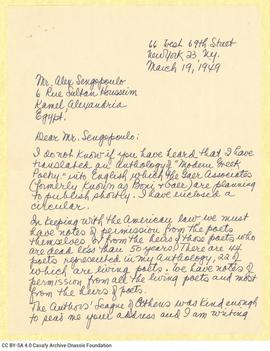 66 West 69th Street
New York 23 Ny.
March 19, 1949
Mr. Alex Sengopoulo
6 Rue Sultan Houssein
Ramel, Alexandria
Egypt.
Dear Mr. Sengopoulo:
I do not know if you have heard that I have
translated an Anthology of "Modern Greek
Poetry" into English which the Gaer Associates
(formerly known as Boni & Gaer) are planning
to publish shortly. I have enclosed a
circular.
In keeping with the American law we must
have notes of permission from the poets
themselves or from the heirs of those poets who
are dead less than 50 years. There are 44
poets represented in my Anthology, 22 of
which are living poets. We have notes of
permission from all the living poets and most
from the heirs of poets.
The Authors' League of Athens was kind enough
to send me your address and I am writing
CC BY-SA 4.0 Cavafy Archive Onassis Foundation